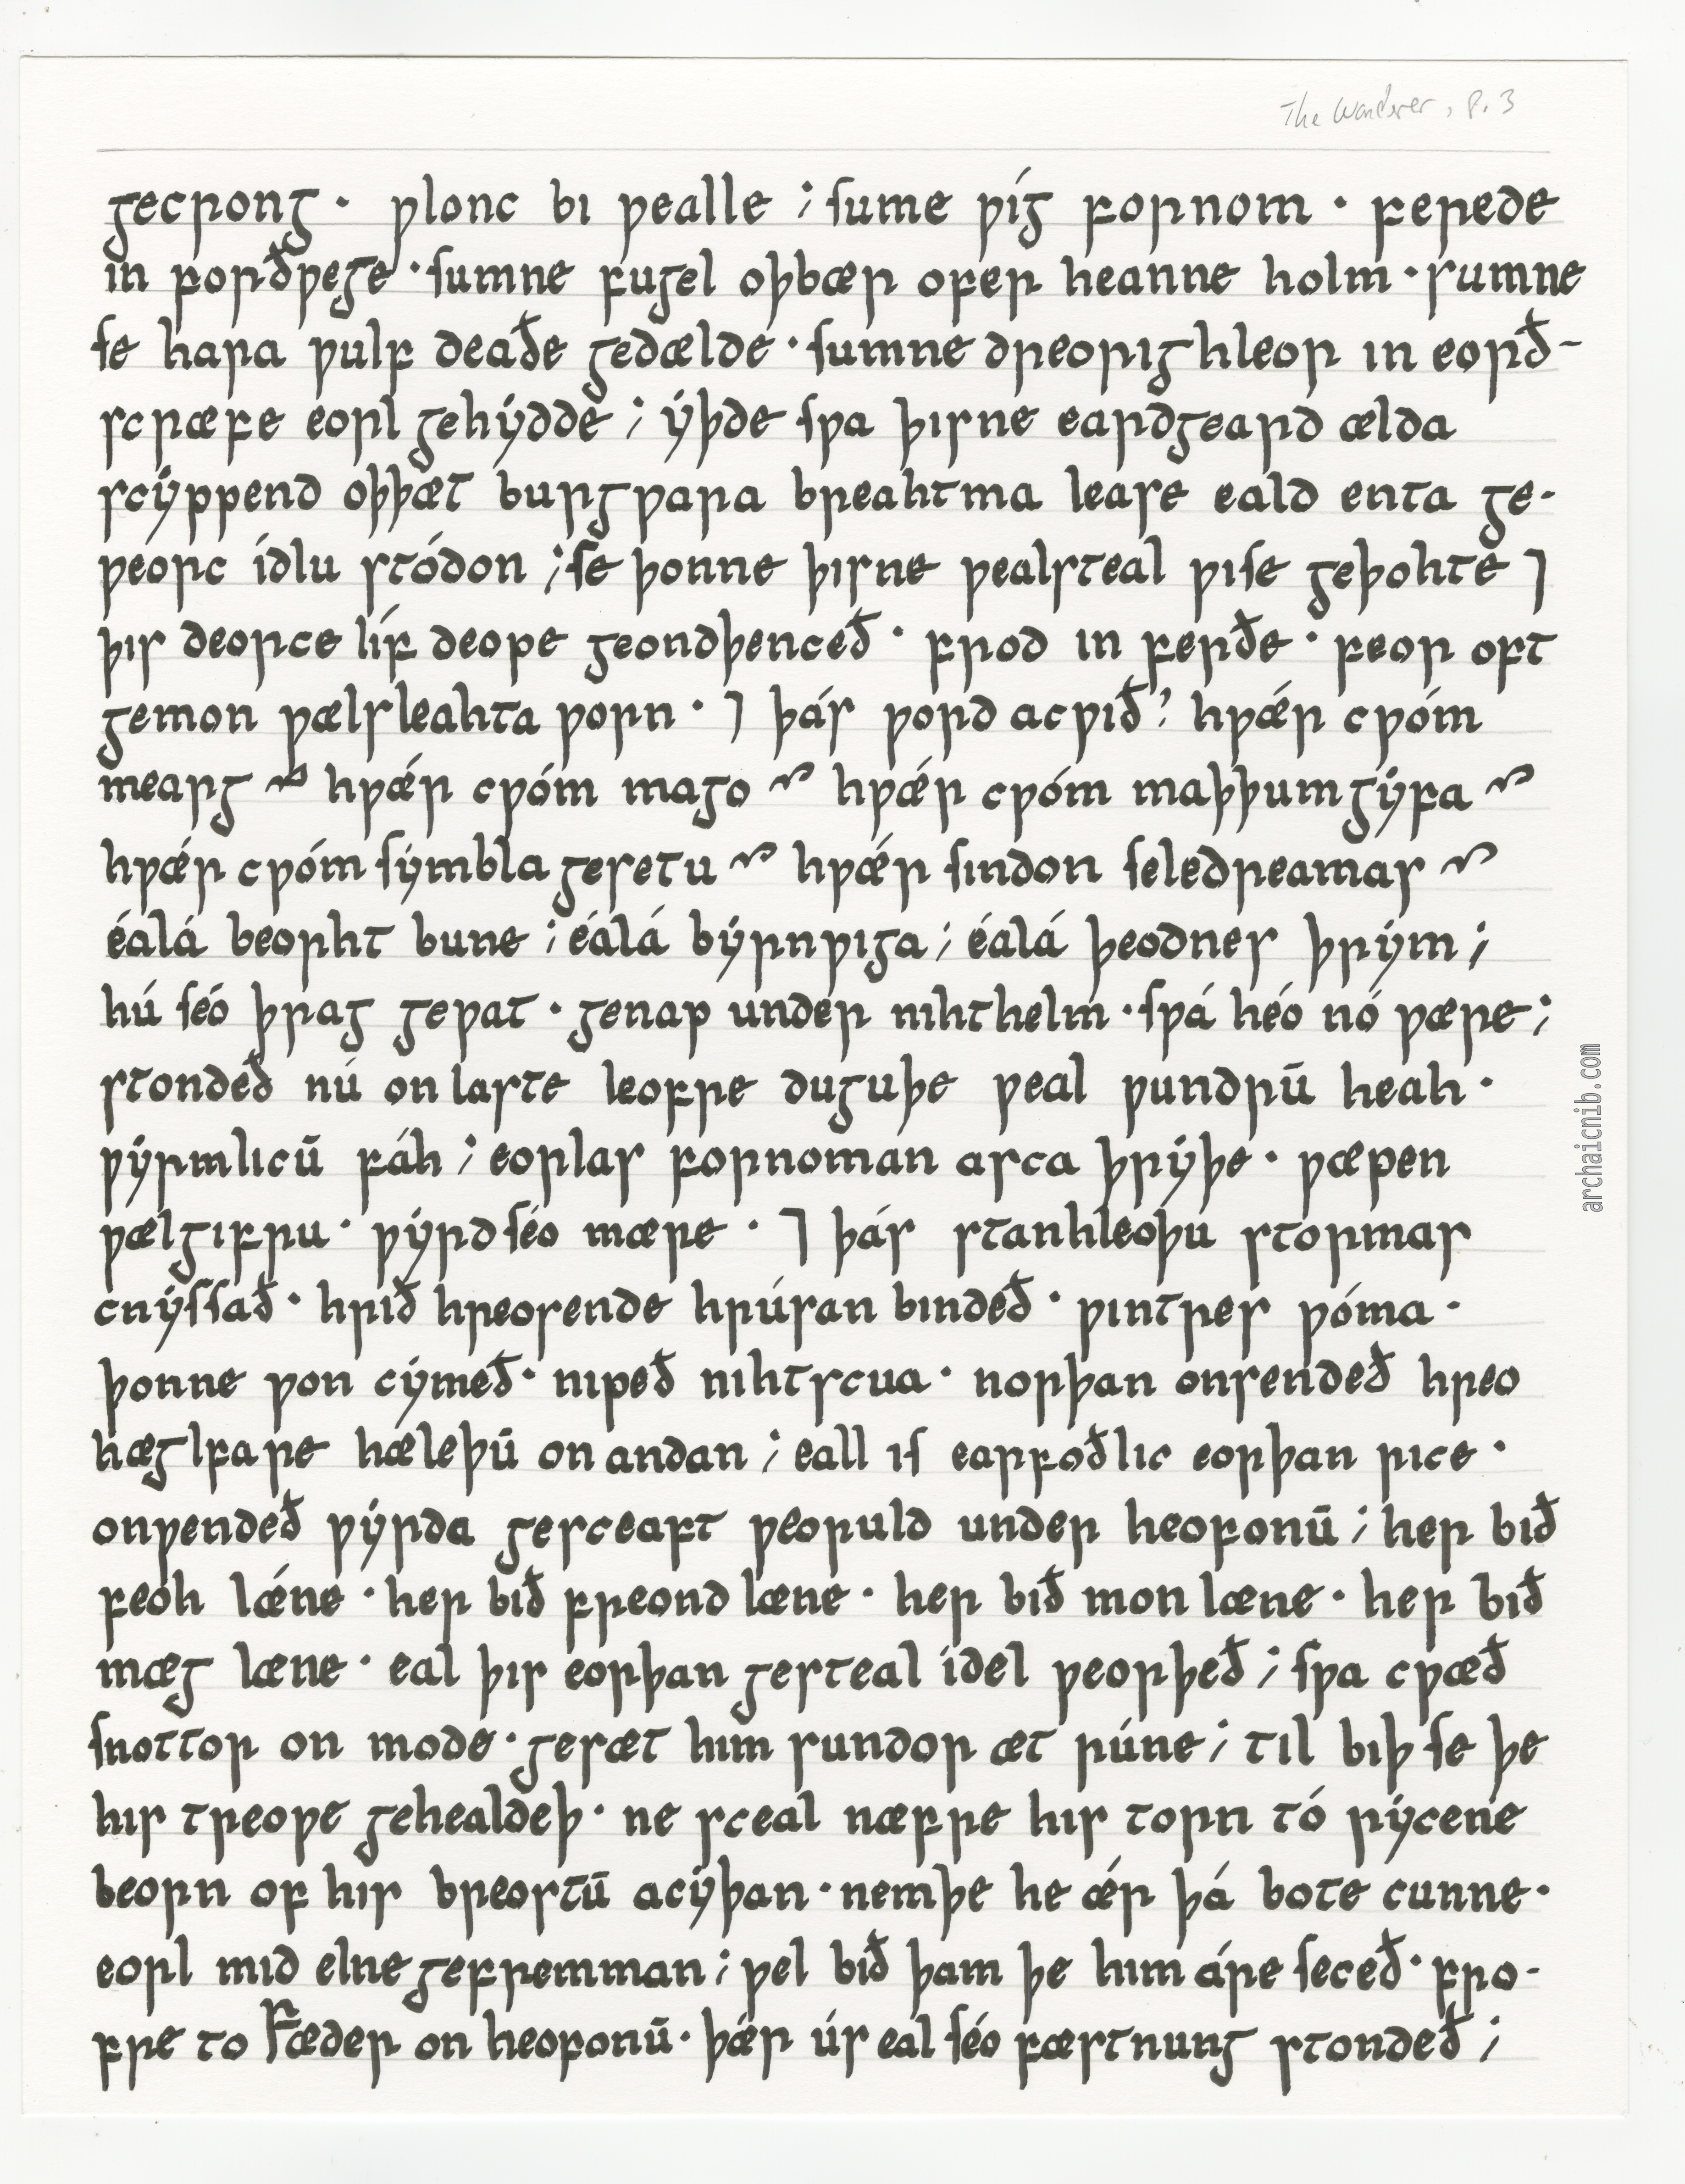 The Wanderer, p. 3
gecrong · ƿlonc bi ƿealle ; ſume ƿíg fornom · ferede
in forðƿege · ſumne fugel oþbær ofer heanne holm · sumne
ſe hara ƿulf deaðe gedælde · ſumne dreorighleor in eorð-
scræfe eorl gehydde ; yþde ſƿa þisne eardgeard ælda
scyppend oþþæt burgƿara breahtma lease eald enta ge-
ƿeorc ídlu stódon ; ſe þonne þisne ƿealsteal ƿiſe geþohte ⁊
þis deorce líf deope geondþenceð · frod in ferðe · feor oft
gemon ƿælsleahta ƿorn · ⁊ þás ƿord acƿið? hƿǽr cƿóm
mearg ? hƿǽr cƿóm mago ? hƿǽr cƿóm maþþumgyfa ?
hƿǽr cƿóm ſymbla gesetu ? hƿǽr ſindon ſeledreamas ?
éalá beorht bune ; éálá byrnƿiga ; éalá þeodnes þrym ;
hú ſéó þrag geƿat · genap under nihthelm · ſƿá héo nó ƿære ;
stondeð nú on laste leofre duguþe ƿeal ƿundrū heah ·
ƿyrmlicū fáh ; eorlas fornoman asca þryþe · ƿæpen
ƿælgifru · ƿyrd ſéo mære · ⁊ þás stanhleoþu stormas
cnyſſað · hrið hreosende hrúsan bindeð · ƿintres ƿóma ·
þonne ƿon cymeð · nipeð nihtscua · norþan onsendeð hreo
hæglfare hæleþū on andan ; eall iſ earfoðlic eorþan rice ·
onƿendeð ƿyrda gesceaft ƿeoruld under heofonū ; her bið
feoh lǽne · her bið freond læne · her bið mon læne · her bið
mæg læne · eal þis eorþan gesteal idel ƿeorþeð ; ſƿa cƿæð
ſnottor on mode · gesæt him sundor æt rúne ; til biþ ſe þe
his treoƿe gehealdeþ · ne sceal næfre his torn tó rycene
beorn of his breostū acyþan · nemþe he ǽr þá bote cunne ·
eorl mid elne gefremman ; ƿel bið þam þe him áre ſeceð · fro-
fre to Fæder on heofonū · þǽr ús eal ſéo fæstnung stondeð ;
archaicnib.com